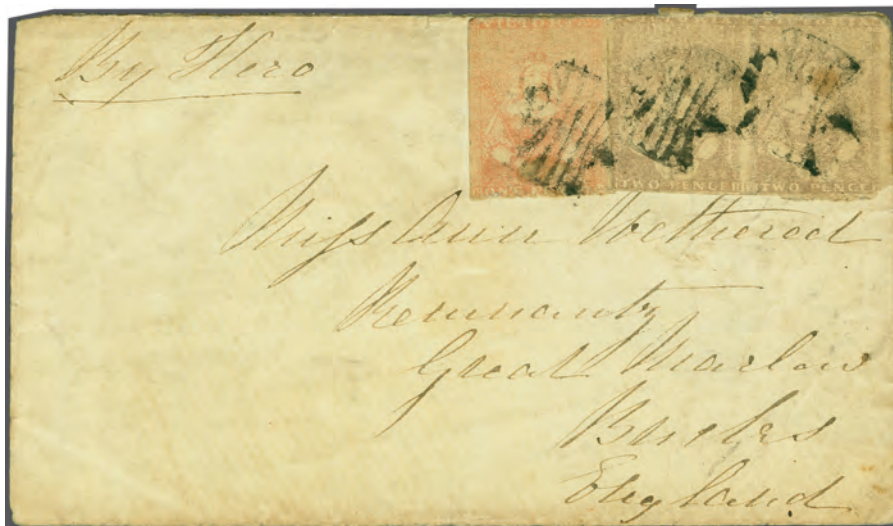 By Hero
VICTORIA
TWO PENCE
TWO PENCE
Miss Ann Wethered
Remnantz
Great Marlow
Bucks
England